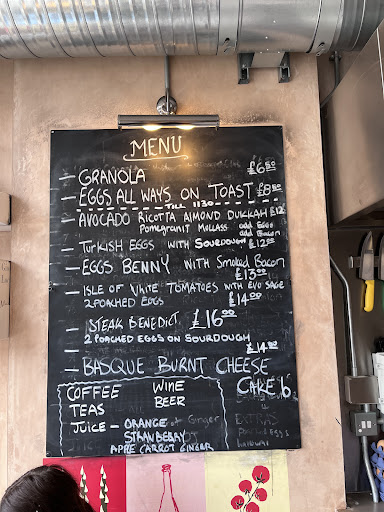 MENU
– GRANOLA £6.50
– EGGS ALL WAYS ON TOAST £8.50
TILL 1130
– AVOCADO RICOTTA ALMOND DUKKAH £12
POMEGRANIT MOLLASS add EGGS
add Bacon
– TURKISH EGGS WITH SOURDOUGH £12.00
– EGGS BENNY WITH Smoked Bacon
£13.00
– ISLE OF WHITE TOMATOES WITH EVO SAGE
2 POACHED EGGS £14.00
– STEAK BENEDICT £16.00
2 POACHED EGGS ON SOURDOUGH
£14.00
– BASQUE BURNT CHEESE
CAKE 6
COFFEE WINE
TEAS BEER
JUICE – ORANGE
Ginger
STRAWBERRY
APPLE CARROT GINGER
EXTRAS
EGGS